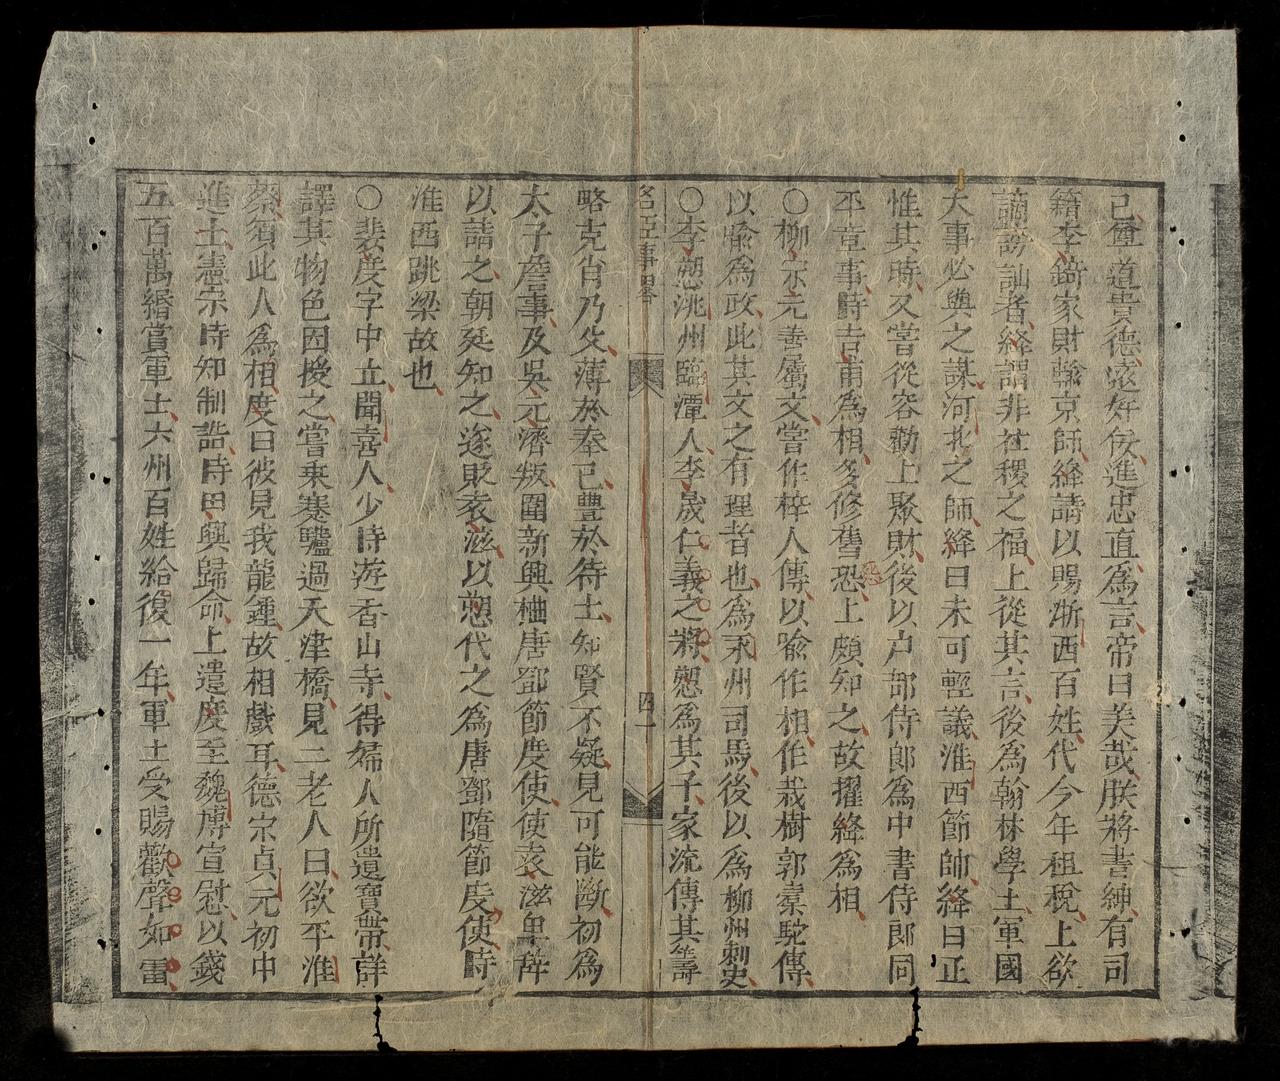 己尊道貴德遠奸佞進忠直爲言帝曰美哉朕將書紳有司
籍李錡家財輸京師絳請以賜浙西百姓代今年租稅上欲
謫謗訕者絳謂非社稷之福上從其言後爲翰林學士軍國
大事必與之謀河北之師絳曰未可輕議淮西節師絳曰正
惟其時又嘗從容勸上聚財後以户部侍郎爲中書侍郎同
平章事時吉甫爲相多修舊怨上頗知之故擢絳爲相
○柳宗元善屬文嘗作梓人傳以喻作相作栽樹郭橐駝傳
以喻爲政此其文之有理者也爲永州司馬後以爲柳州刺史
○李愬洮州臨潭人李晟仁義之將愬爲其子家流傳其籌
名臣事畧 四一
略克肖乃父薄於奉己豐於待士知賢不疑見可能斷初爲
太子詹事及吳元濟叛圍新興柚唐鄧節度使使袁滋卑辞
以請之朝廷知之遂貶袁滋以愬代之爲唐鄧隨節度使時
淮西跳梁故也
○裴度字中立聞喜人少時遊香山寺得婦人所遺寶帶詳
譯其物色因授之嘗乗蹇驢過天津橋見二老人曰欲平淮
蔡須此人爲相度曰彼見我龍鍾故相戲耳德宗貞元初中
進士憲宗時知制誥時田興歸命上遣度至魏博宣慰以錢
五百萬緡賞軍士六州百姓給復一年軍士受賜歡聲如雷